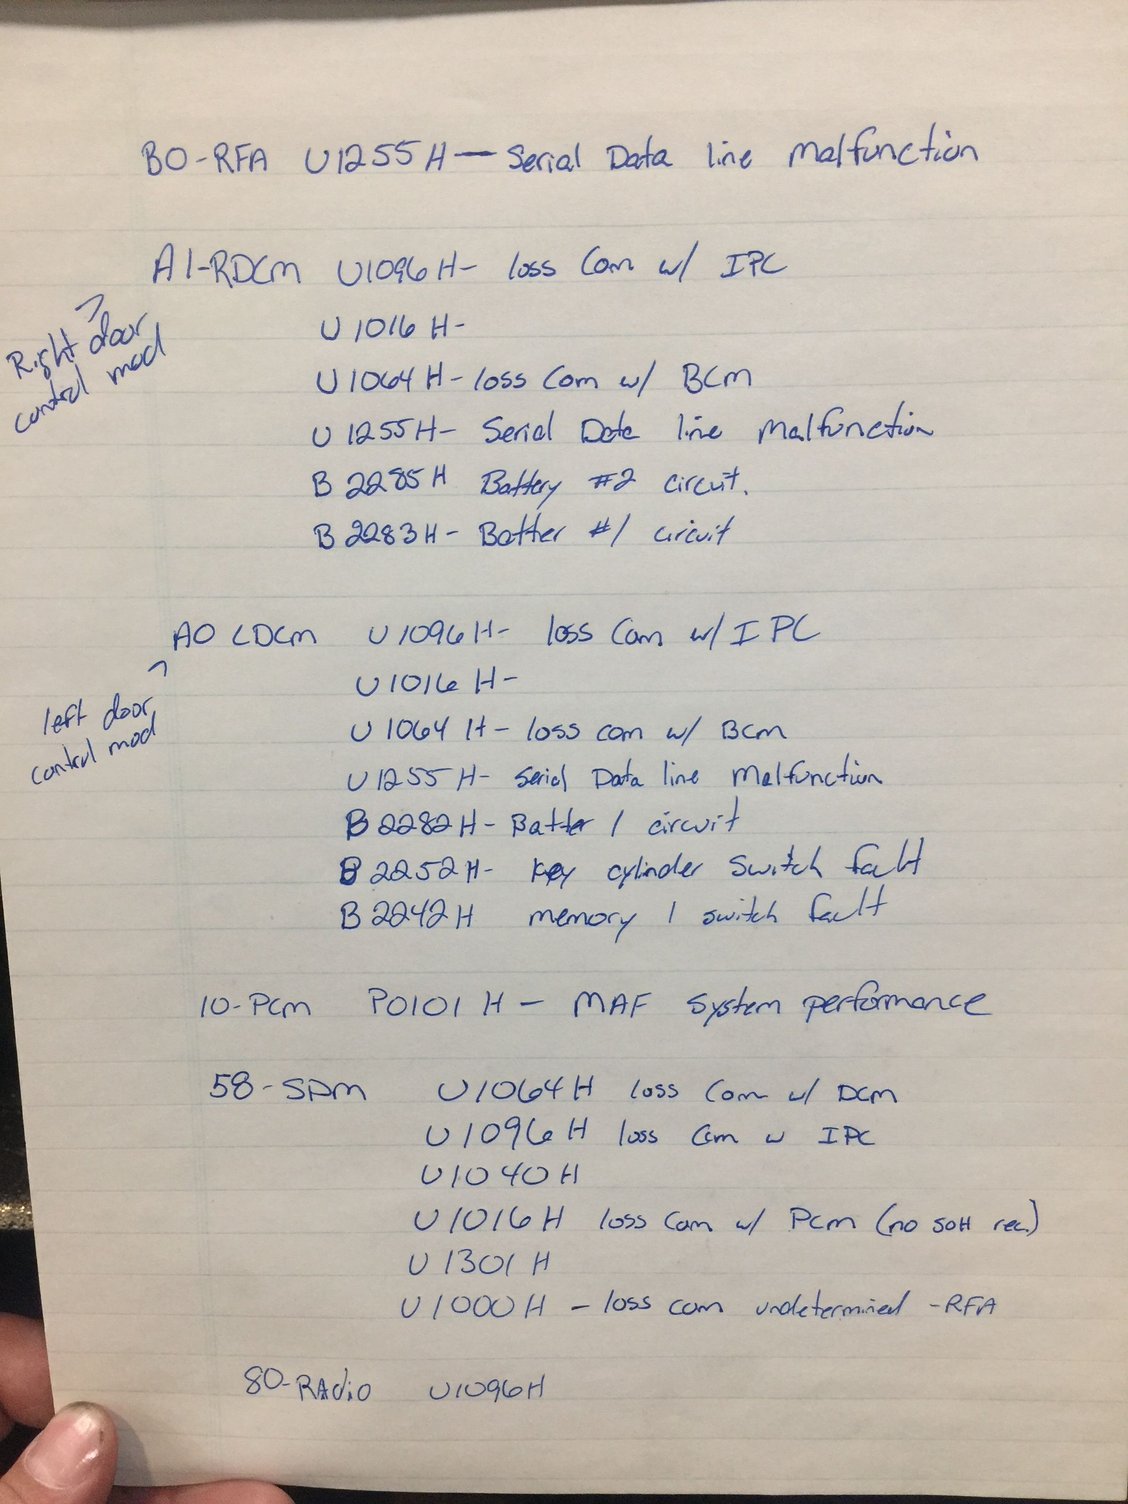 B0-RFA U1255H — Serial Data line malfunction
A1-RDCM U1096H- loss Com w/ IPC
Right door
control mod
U1016H-
U1064H- loss Com w/ BCM
U1255H- Serial Data line Malfunction
B2285H Battery #2 circuit.
B2283H- Batter #1 circuit
A0 LDCM U1096H- loss Com w/ IPC
left door
control mod
U1016H-
U1064H- loss com w/ BCM
U1255H- Serial Data line Malfunction
B2282H- Batter 1 circuit
B2252H- Key cylinder Switch fault
B2242H memory 1 switch fault
10-PCM P0101H - MAF System performance
58-SDM U1064H loss Com w/ DCM
U1096H loss Com w IPC
U1040H
U1016H loss Com w/ PCM (no SOH rec.)
U1301H
U1000H - loss com undetermined -RFA
80-RAdio U1096H